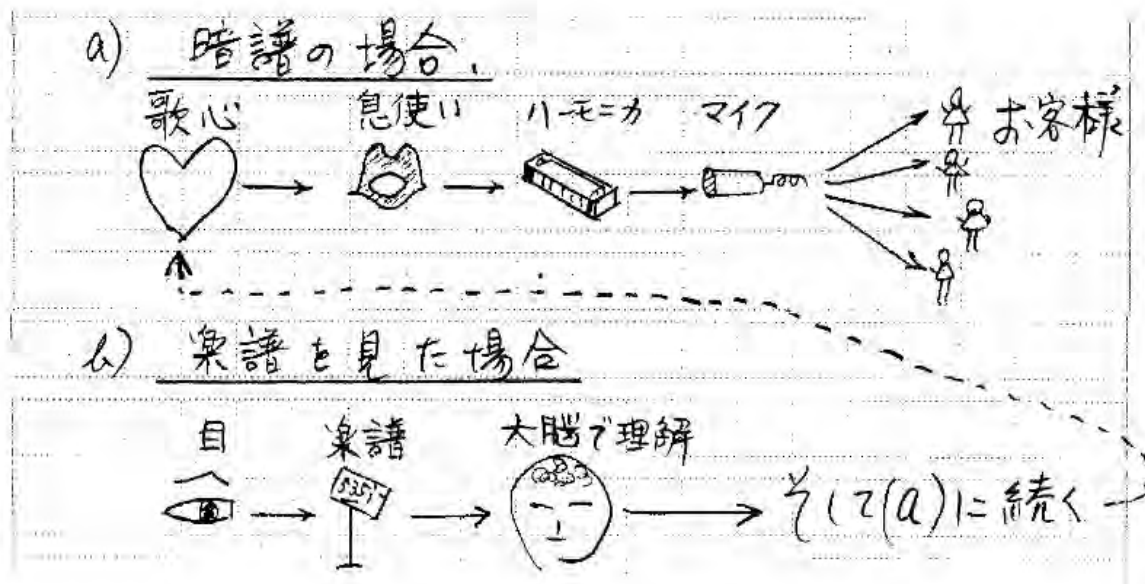 a) 暗譜の場合、
歌心 息使い ハーモニカ マイク お客様
b) 楽譜を見た場合
目 楽譜 大脳で理解
そして(a)に続く